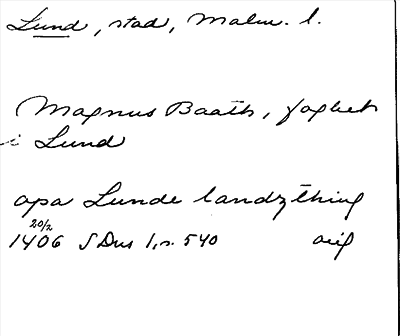 Lund, stad, Malm. l.
Magnus Baath, foghet
i Lund
apa Lunde landzthing
20/2
1406 SDns 1, s. 540 orig